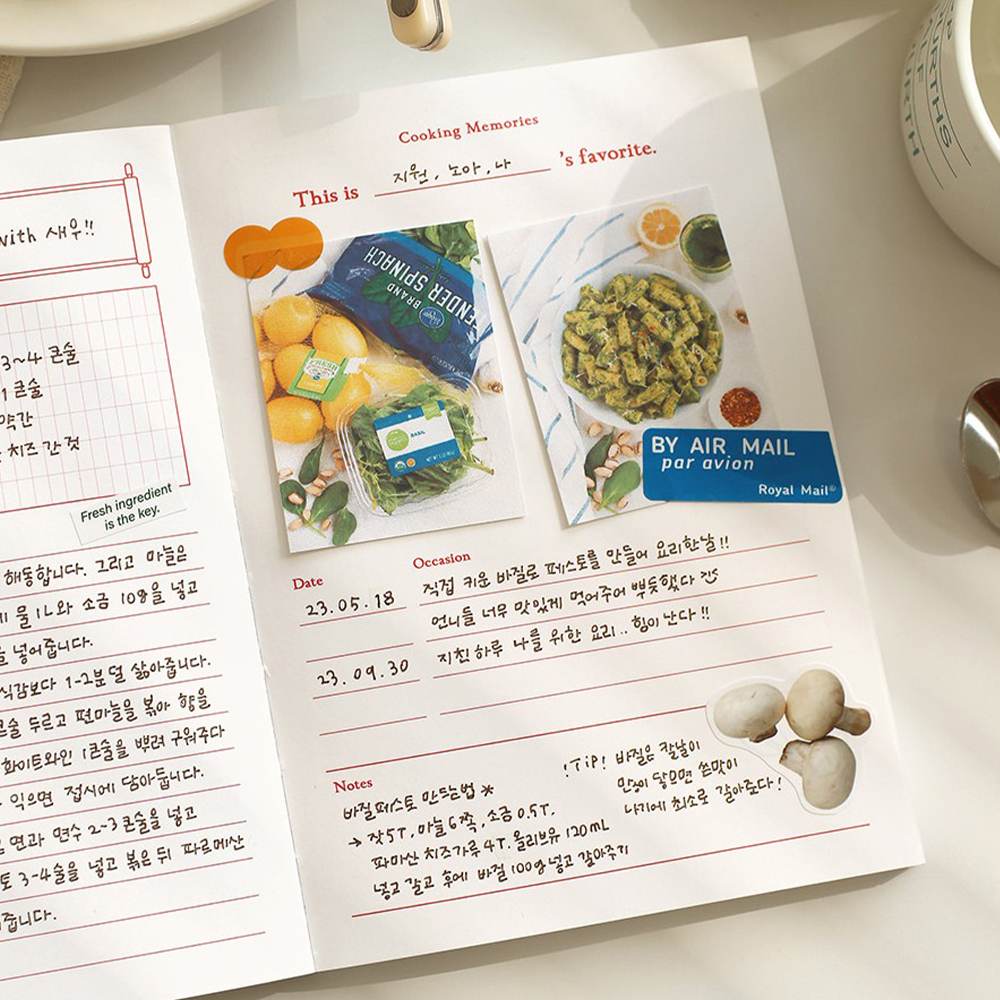 with 새우!!
3~4 큰술
1 큰술
약간
치즈 간 것
Fresh ingredient
is the key.
해동합니다. 그리고 마늘은
물 1L와 소금 10g을 넣고
넣어줍니다.
식감보다 1-2분 덜 삶아줍니다.
두르고 편마늘을 볶아 향을
화이트와인 1큰술을 뿌려 구워주다
익으면 접시에 담아둡니다.
면과 면수 2~3큰술을 넣고
3-4술을 넣고 볶은 뒤 파르메산
줍니다.
Cooking Memories
This is 지원, 노아, 나 's favorite.
TENDER SPINACH
BRAND
FRESH
BASIL
BY AIR MAIL
par avion
Royal Mail®
Date
Occasion
23.05.18 직접 키운 바질로 페스토를 만들어 요리한날!!
언니들 너무 맛있게 먹어주어 뿌듯했다
23.09.30 지친하루 나를 위한 요리.. 힘이 난다!!
Notes
바질페스토 만드는법 *
→ 잣5T, 마늘6쪽, 소금0.5T.
파마산 치즈가루 4T. 올리브유 120mL
넣고 갈고 후에 바질 100g 넣고 갈아주기
!TiP! 바질은 칼날이
많이 닿으면 쓴맛이
나기에 최소로 갈아준다!
P OURTHS
HALF
FOURTH